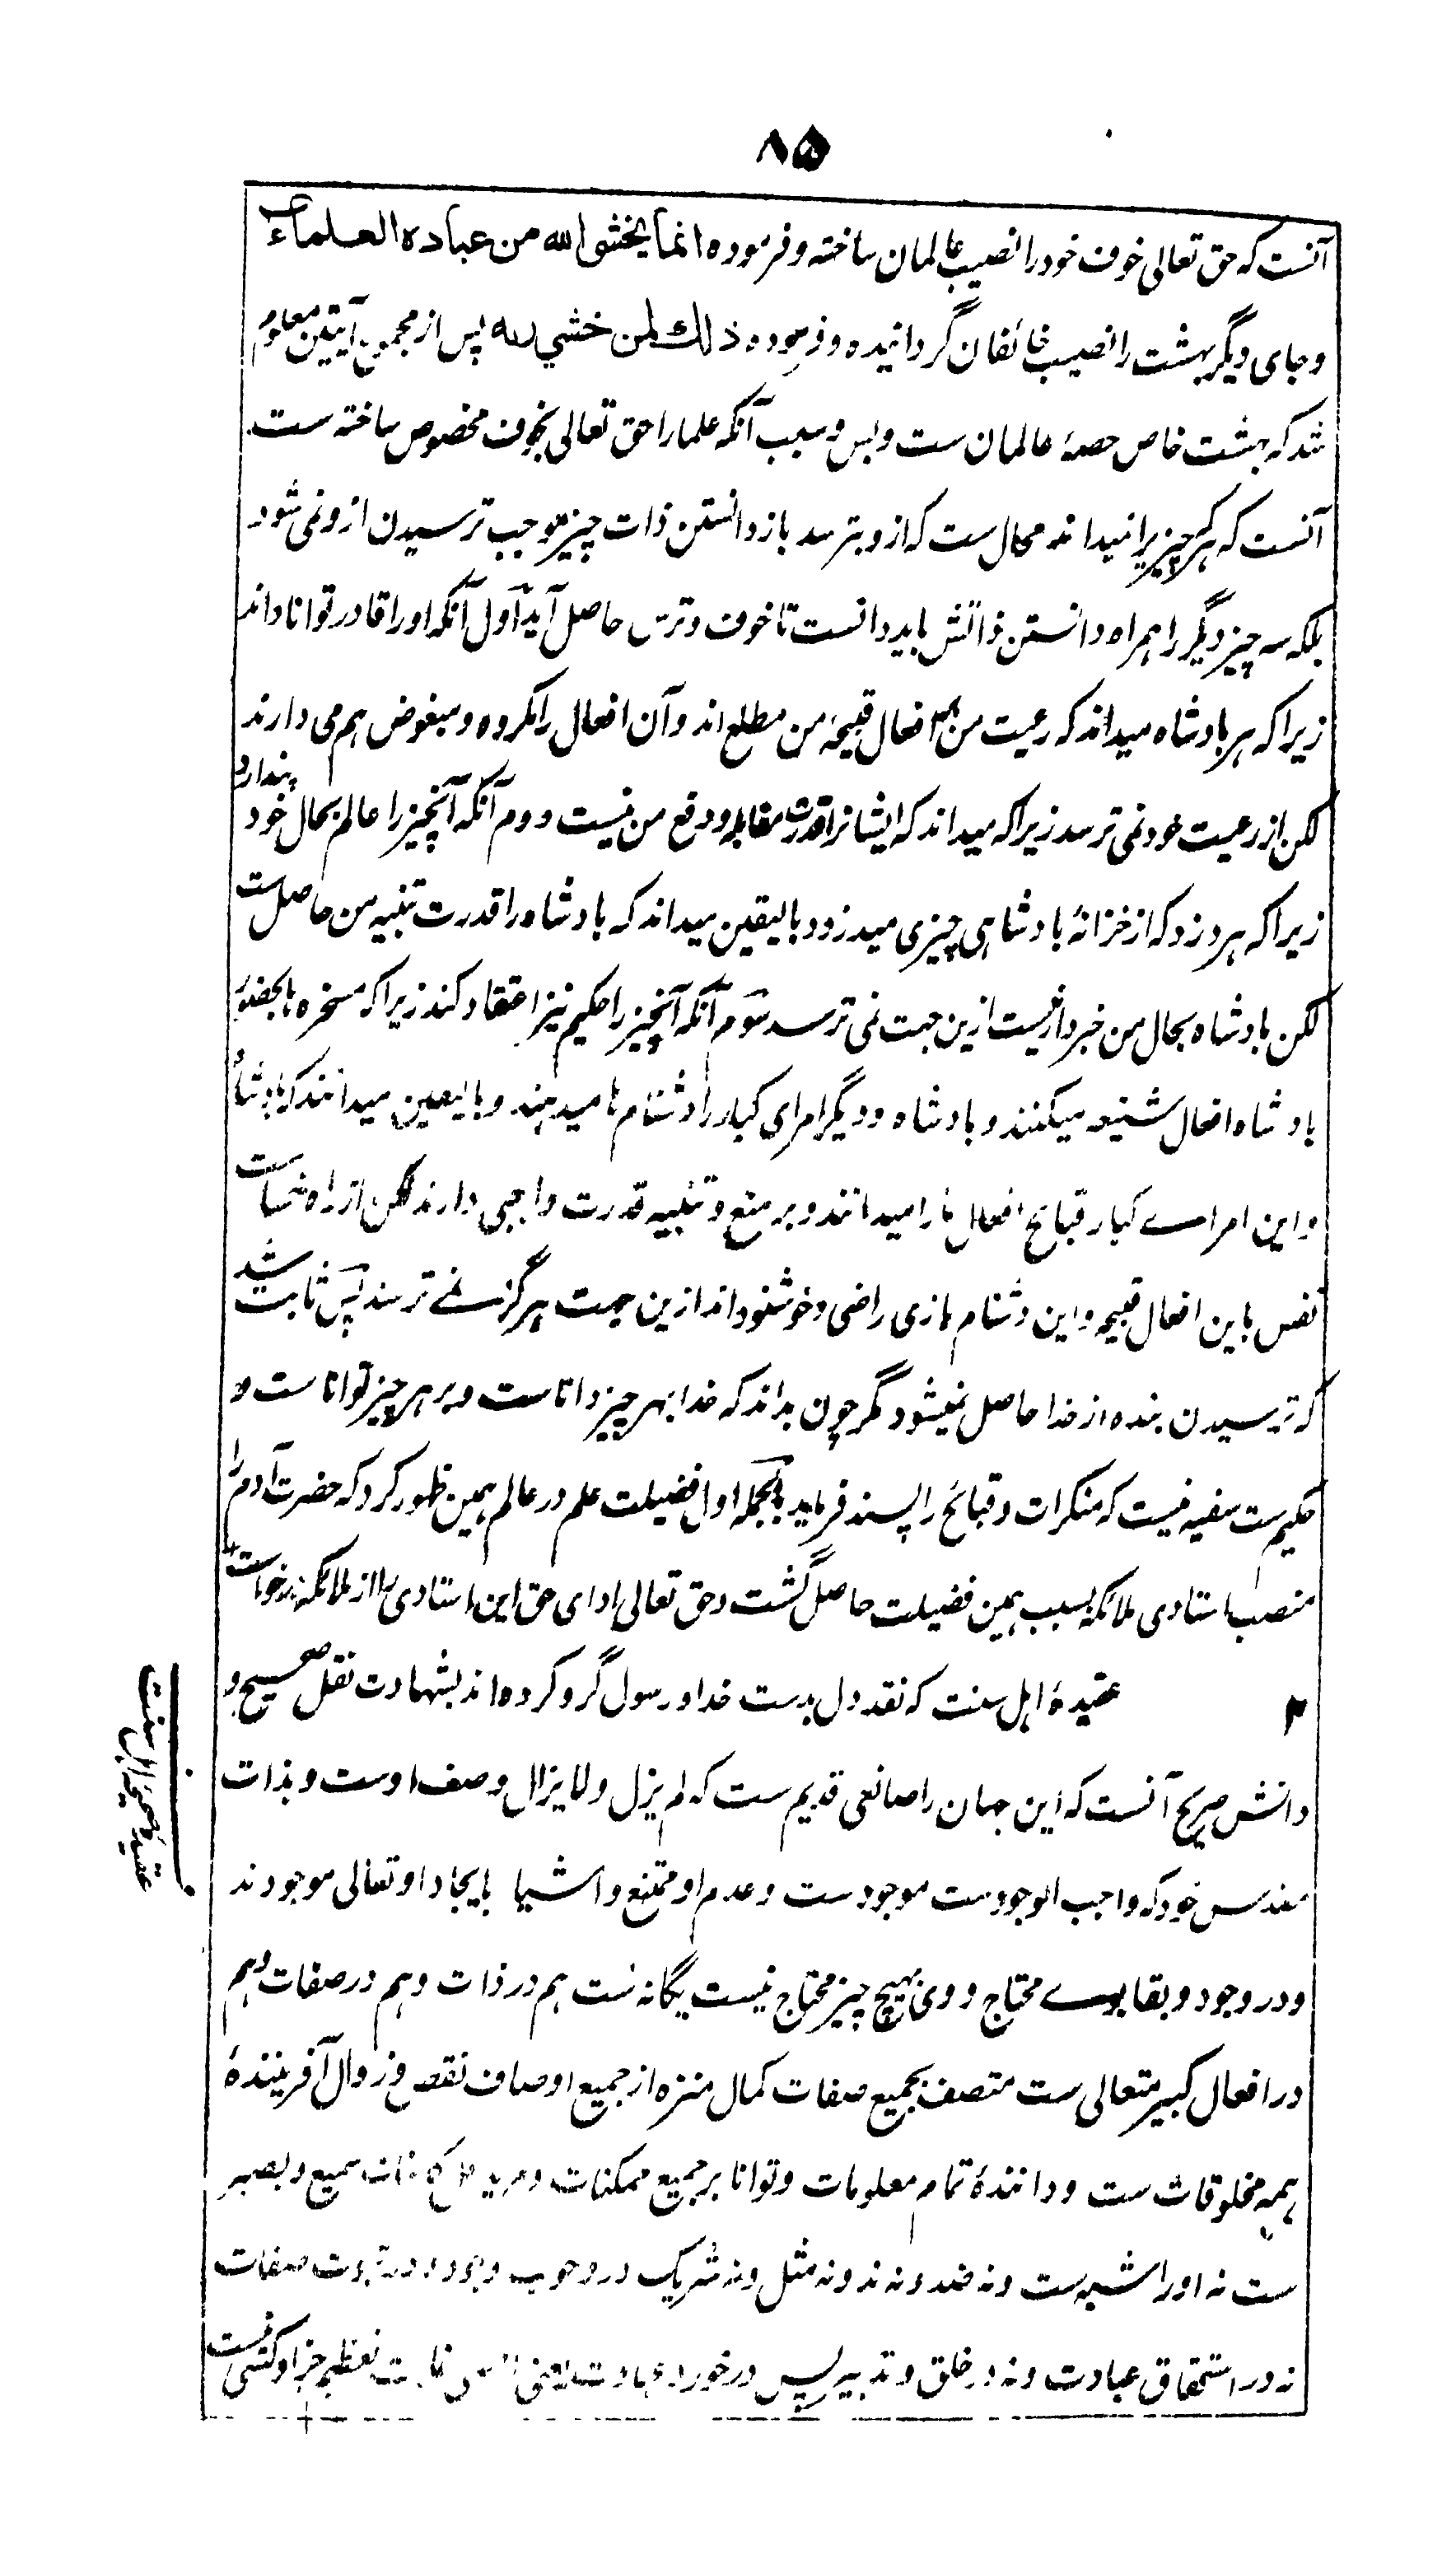 ۸۵
آنست که حق تعالی خوف خود را نصیب عالمان ساخته و فرموده انما یخشی الله من عباده العلماء
و جای دیگر بهشت را نصیب خائفان گردانیده و فرموده ذلك لمن خشي ربه پس از مجموع آیتین معلوم
شد که بهشت خاص حصهٔ عالمان ست و بس و سبب آنکه علما را حق تعالی بخوف مخصوص ساخته ست
آنست که هر که چیزیرا نمیداند محال ست که ازو بترسد باز دانستن ذات چیزی موجب ترسیدن ازو نمی شود
بلکه سه چیز دیگر را همراه دانستن ذاتش باید دانست تا خوف و ترس حاصل آید اول آنکه او را قادر توانا داند
زیرا که هر بادشاه میداند که رعیت من بر افعال قبیحهٔ من مطلع اند و آن افعال را مکروه و مبغوض هم می دارند
لکن از رعیت خود نمی ترسد زیرا که میداند که ایشانرا قدرت مقابله و دفع من نیست دوم آنکه آنچیز را عالم بحال خود پندارد
زیرا که هر دزد که از خزانهٔ بادشاهی چیزی میدزدد بالیقین میداند که بادشاه را قدرت تنبیه من حاصل ست
لکن بادشاه بحال من خبردار نیست ازین جهت نمی ترسد سوم آنکه آنچیز را حکیم نیز اعتقاد کند زیرا که مسخره ها بحضور
بادشاه افعال شنیعه میکنند و بادشاه و دیگر امرای کبار را دشنام ها میدهند و بالیقین میدانند که بادشاه
و این امراے کبار قبایح افعال ما را میدانند و بر منع و تنبیه قدرت واجبی دارند لکن از راه خساست
نفس باین افعال قبیحه و این دشنام بازی راضی و خوشنود اند ازین جهت هرگز نمے ترسند پس ثابت شد
که ترسیدن بنده از خدا حاصل نمیشود مگر چون بداند که خدا بهر چیز داناست و بر هر چیز توانا ست و
حکیم ست سفیه نیست که منکرات و قبائح را پسند فرماید بالجمله اول فضیلت علم در عالم همین ظهور کرد که حضرت آدم را
منصب استادی ملائکه بسبب همین فضیلت حاصل گشت و حق تعالی ادای حق این استادی را از ملائکه درخواست
۲ عقیدهٔ اهل سنت که نقد دل بدست خدا و رسول گرو کرده اند بشهادت نقل صحیح و
دانش صریح آنست که این جهان را صانعی قدیم ست که لم یزل و لا یزال وصف اوست و بذات
مقدس خود که واجب الوجودست موجودست و عدم او ممتنع و اشیا بایجاد او تعالی موجودند
و در وجود و بقا بوے محتاج و وی بهیچ چیز محتاج نیست یگانه ست هم در ذات و هم در صفات و هم
در افعال کبیر متعالی ست متصف بجمیع صفات کمال منزه از جمیع اوصاف نقص و زوال آفرینندهٔ
همه مخلوقات ست و دانندهٔ تمام معلومات و توانا بر جمیع ممکنات و مرید سمیع و بصیر
ست نه او را شبیه ست و نه ضد و نه ند و نه مثل و نه شریک در وجوب وجود و در ثبوت صفات
نه در استحقاق عبادت و نه در خلق و تدبیر پس درخور عبادت یعنی تعظیم جز او کسی نیست
عقیدهٔ صحیحهٔ اهل سنت